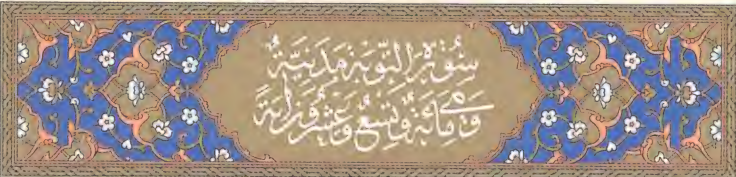 سُورَةُ التَّوْبَةِ مَدَنِيَّةٌ
وَهِيَ مِائَةٌ وَتِسْعٌ وَعِشْرُونَ آيَةً